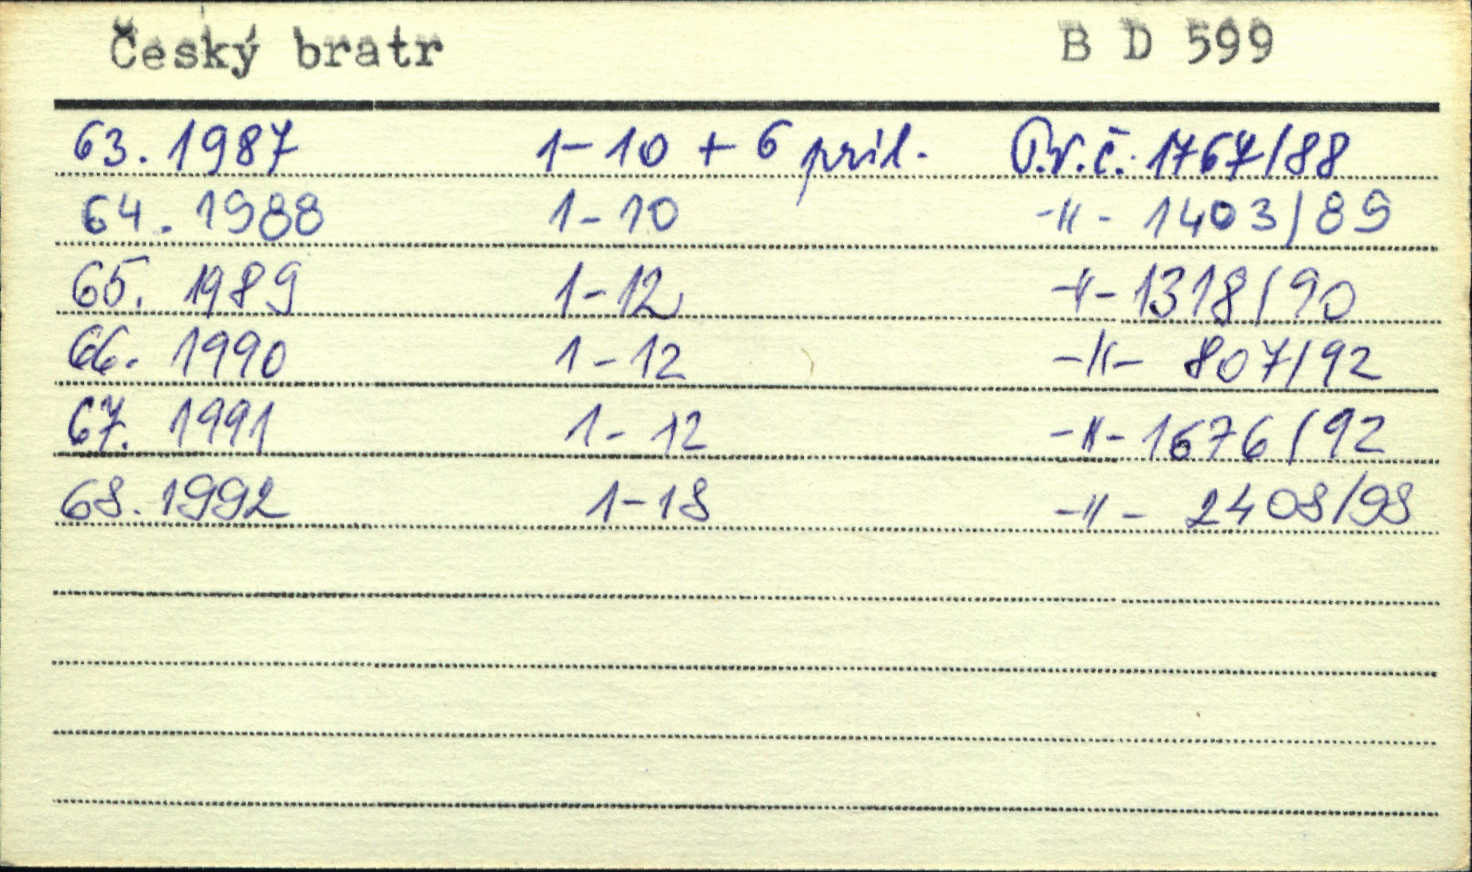 Český bratr B D 599
63. 1987 1-10 + 6 pril. P.r.č. 1767/88
64. 1988 1-10 -"- 1403/89
65. 1989 1-12 -"- 1318/90
66. 1990 1-12 -"- 807/92
67. 1991 1-12 -"- 1676/92
68. 1992 1-18 -"- 2408/98